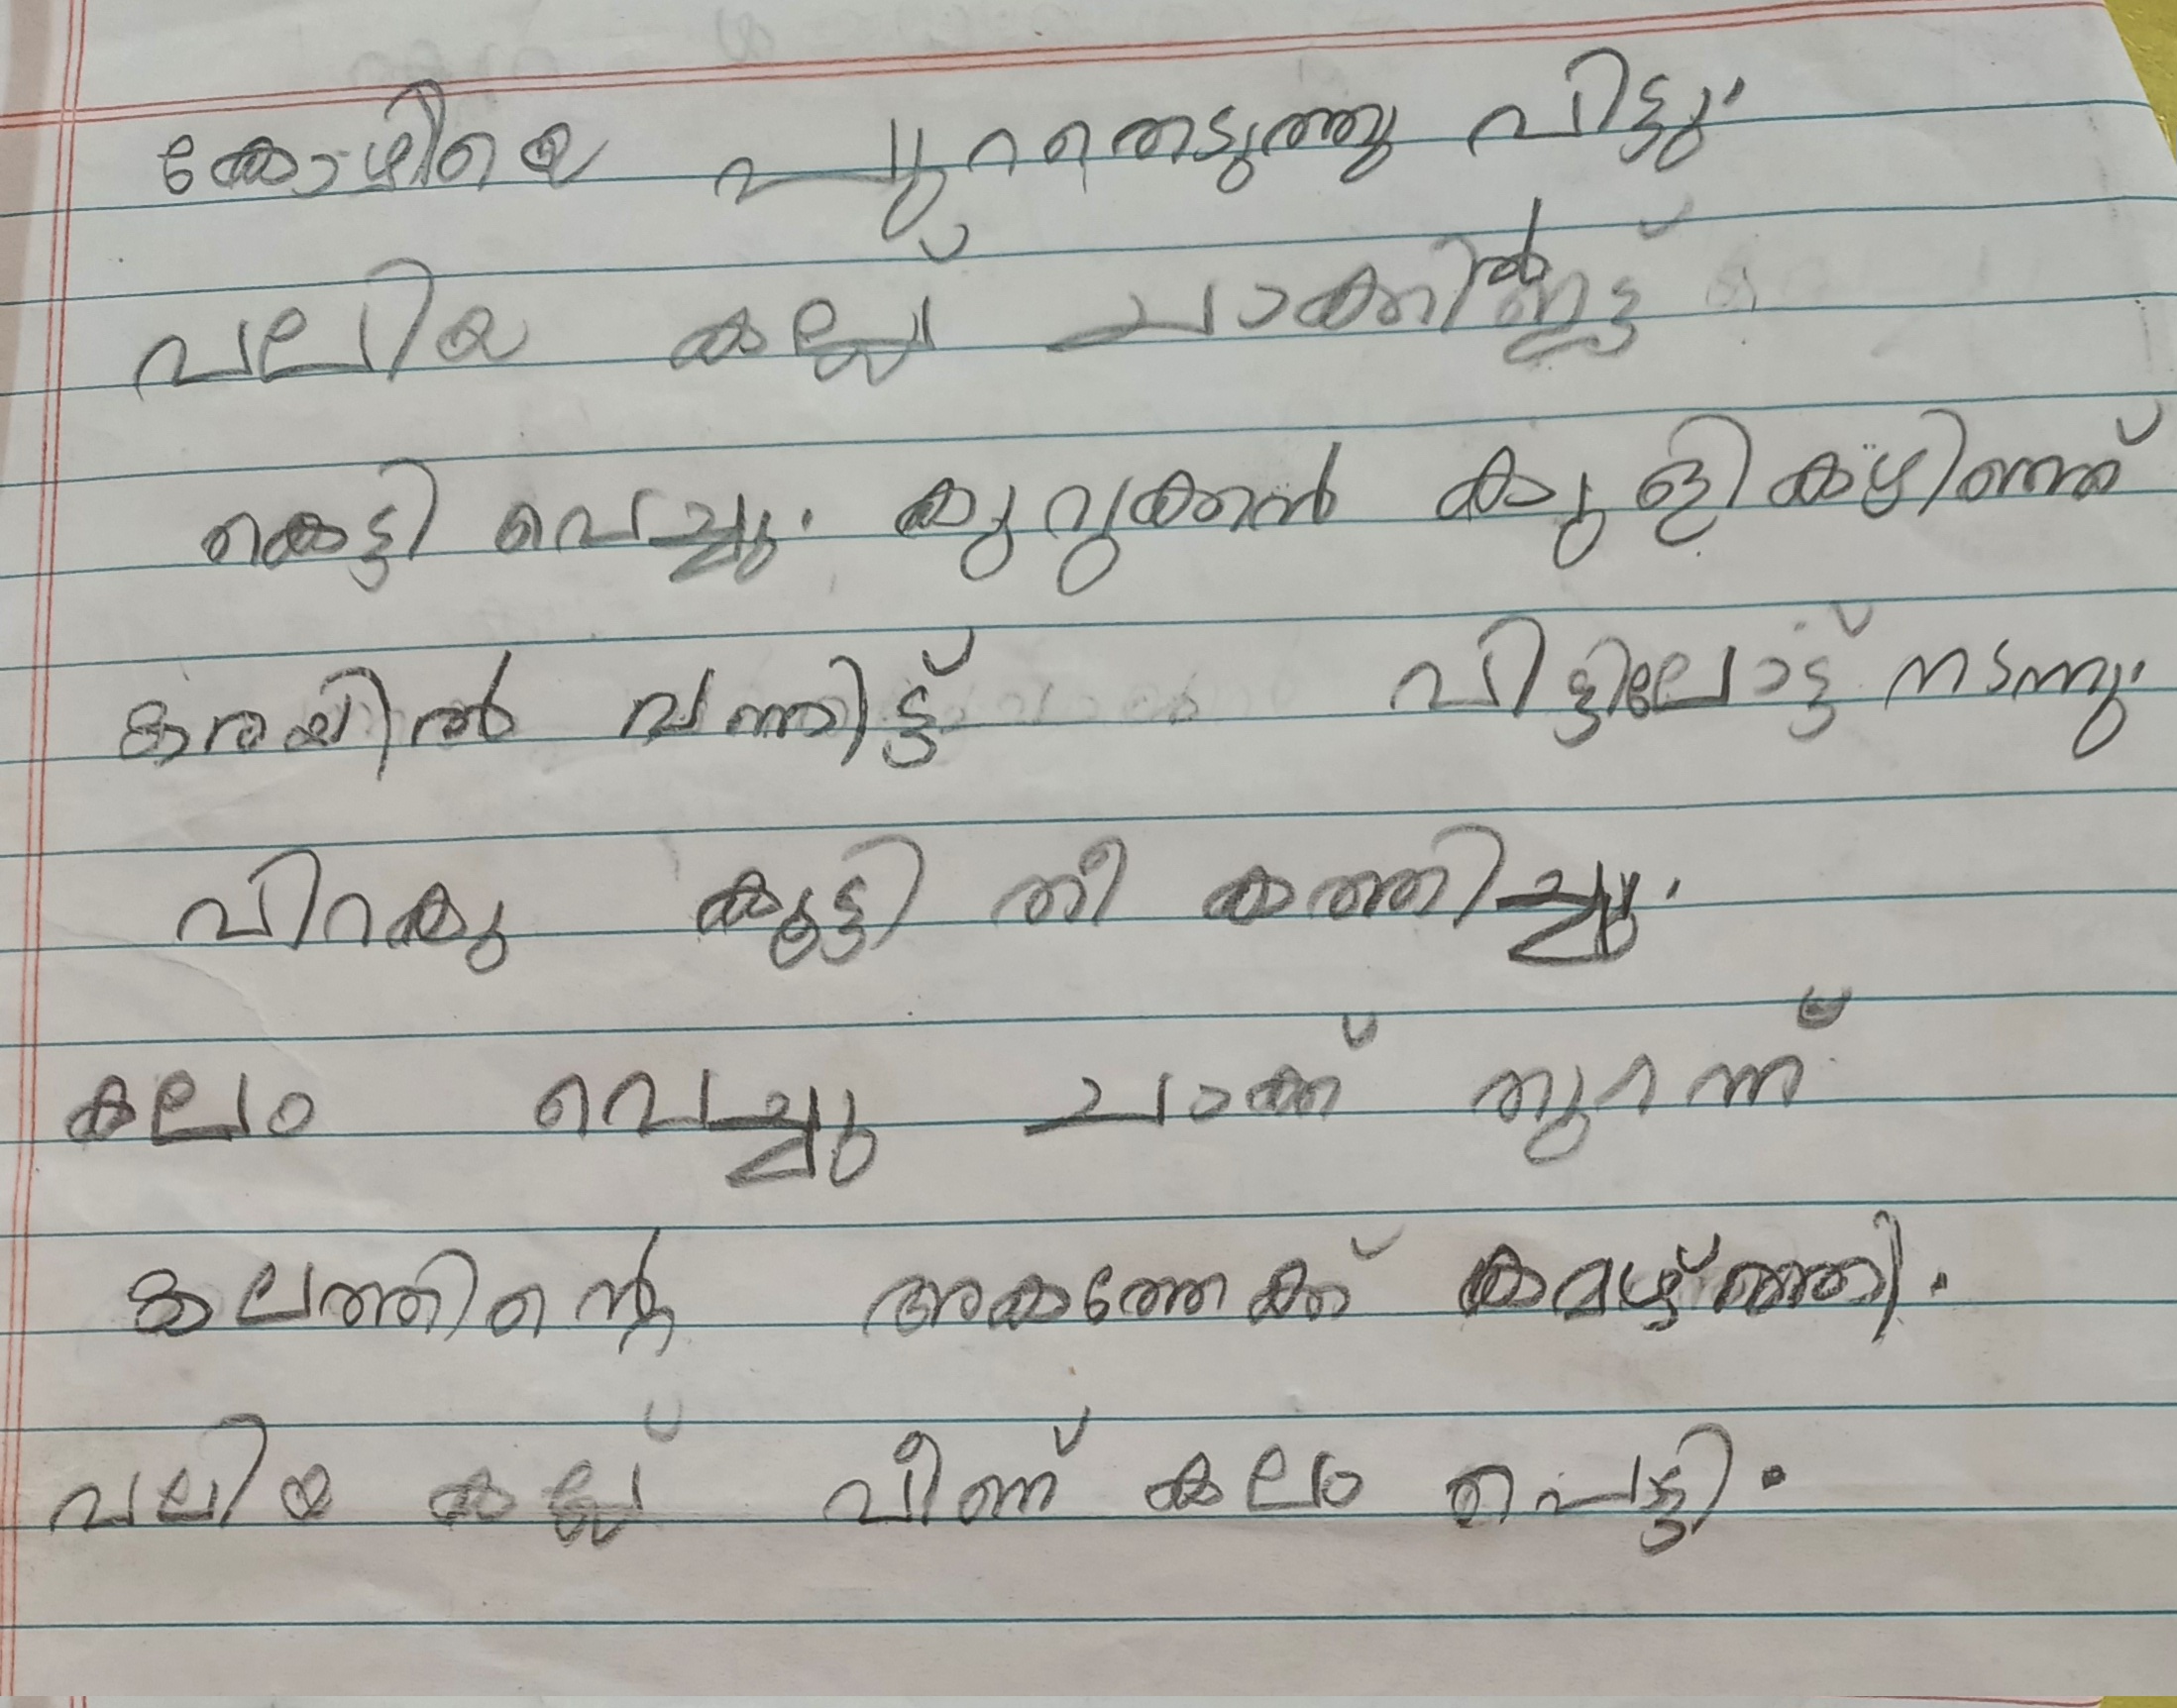 കോഴിയെ പുറതെടുത്തു വിട്ടു.
വലിയ കല്ല് ചാക്കിൽ ഇട്ട്
കെട്ടി വെച്ചു. കുറുക്കൻ കുളി കഴിഞ്ഞ്
കരയിൽ വന്നിട്ട് വിട്ടിലോട്ട് നടന്നു.
വിറകു കൂട്ടി തീ കത്തിച്ചു.
കലം വെച്ചു ചാക്ക് തുറന്ന്
കലത്തിന്റെ അകത്തേക്ക് കമഴ്ത്തി.
വലിയ കല്ല് വീണ് കലം പൊട്ടി.